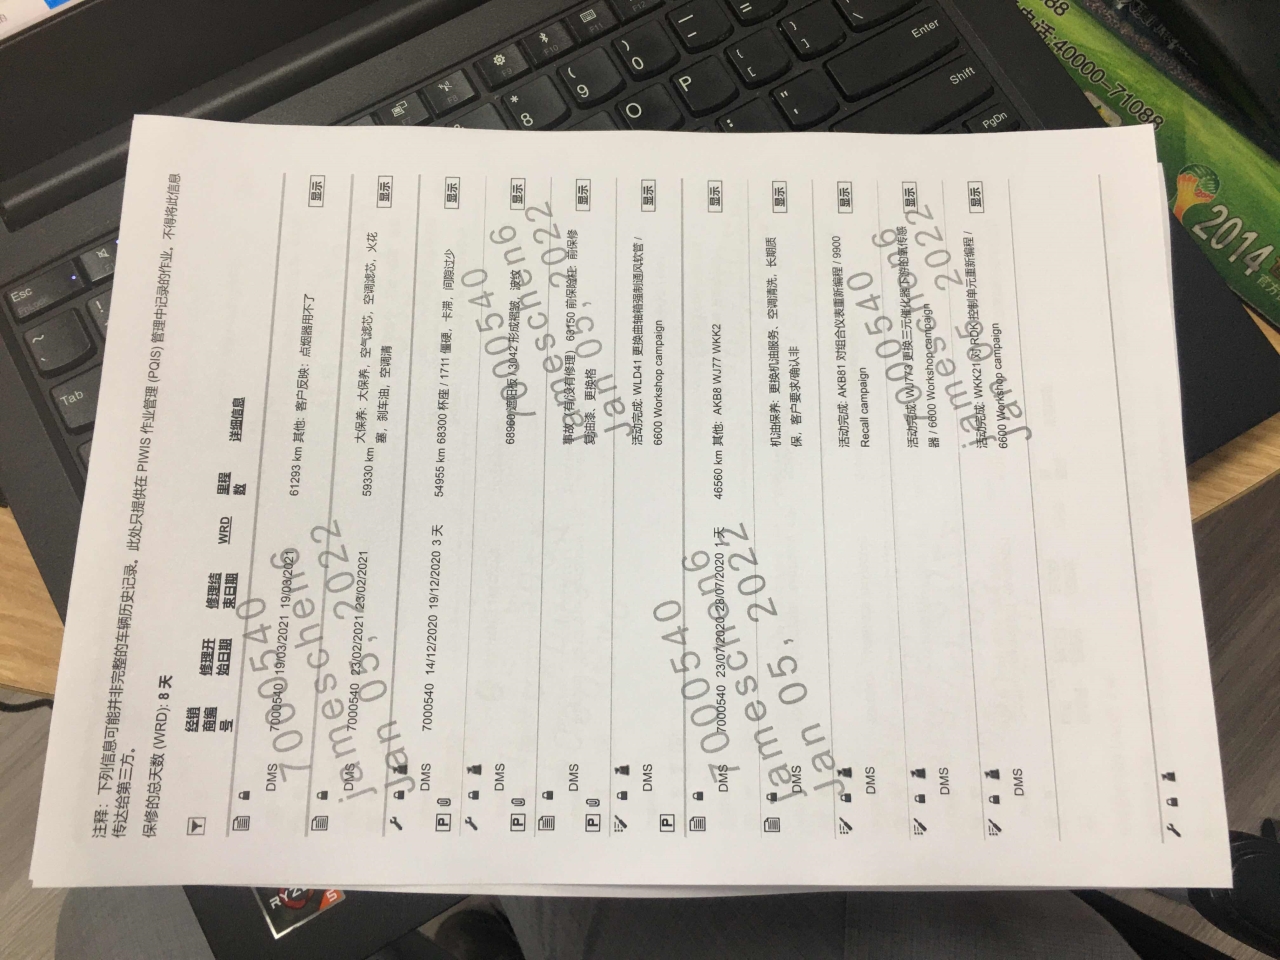 注释：下列信息可能并非完整的车辆历史记录。此处只提供在 PIWIS 作业管理 (PQIS) 管理中记录的作业。不得将此信息
传达给第三方。
保修的总天数 (WRD): 8 天
经销商编号 修理开始日期 修理结束日期 WRD 里程数 详细信息
DMS 7000540 19/03/2021 19/03/2021 61293 km 其他: 客户反映：点烟器用不了 显示
DMS 7000540 23/02/2021 23/02/2021 59330 km 大保养: 大保养，空气滤芯，空调滤芯，火花
塞，刹车油，空调清 显示
DMS 7000540 14/12/2020 19/12/2020 3 天 54955 km 68300 杯座 / 1711 僵硬，卡滞，间隙过少 显示
P
DMS 68960 遮阳板 / 3042 形成褶皱，波纹 显示
P
DMS 事故 (有/没有修理) 63150 前保险杠: 前保修
复油漆、更换格 显示
P
DMS 活动完成: WLD41 更换曲轴箱强制通风软管 /
6600 Workshop campaign 显示
P
DMS 7000540 23/07/2020 28/07/2020 1 天 46560 km 其他: AKB8 WJ77 WKK2 显示
DMS 机油保养: 更换机油服务、空调清洗，长期质
保，客户要求/确认非 显示
DMS 活动完成: AKB81 对组合仪表重新编程 / 9900
Recall campaign 显示
DMS 活动完成: WJ773 更换三元催化器下游的氧传感
器 / 6600 Workshop campaign 显示
DMS 活动完成: WKK21 对 RDK 控制单元重新编程 /
6600 Workshop campaign 显示
7000540
jameschen6
jan 05, 2022
7000540
jameschen6
jan 05, 2022
7000540
jameschen6
jan 05, 2022
7000540
jameschen6
jan 05, 2022
Esc
Tab
Enter
Shift
PgDn
F8
F9
F10
F11
F12
8
9
0
O
P
40000-71088
2014
RYZ
5